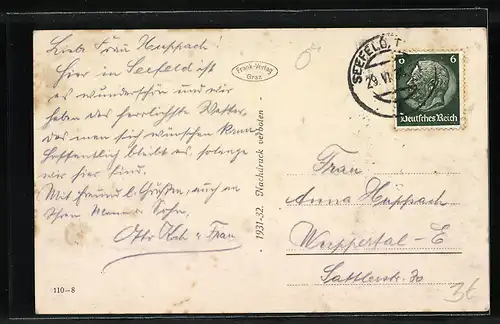 Liebe Frau Huppach!
Hier in Seefeld ist
es wunderschön und wir
haben das herrlichste Wetter,
das man sich wünschen kann.
Hoffentlich bleibt es, solange
wir hier sind.
Mit freundl. Grüßen, auch an
Ihren Mann u. Sohn,
Otto Koch u. Frau
110-8
Frank-Verlag
Graz
- 1931-32. Nachdruck verboten -
SEEFELD, T
29. VI.
6 6
Deutsches Reich
Frau
Anna Huppach
Wuppertal-E
Sattlerstr. 30